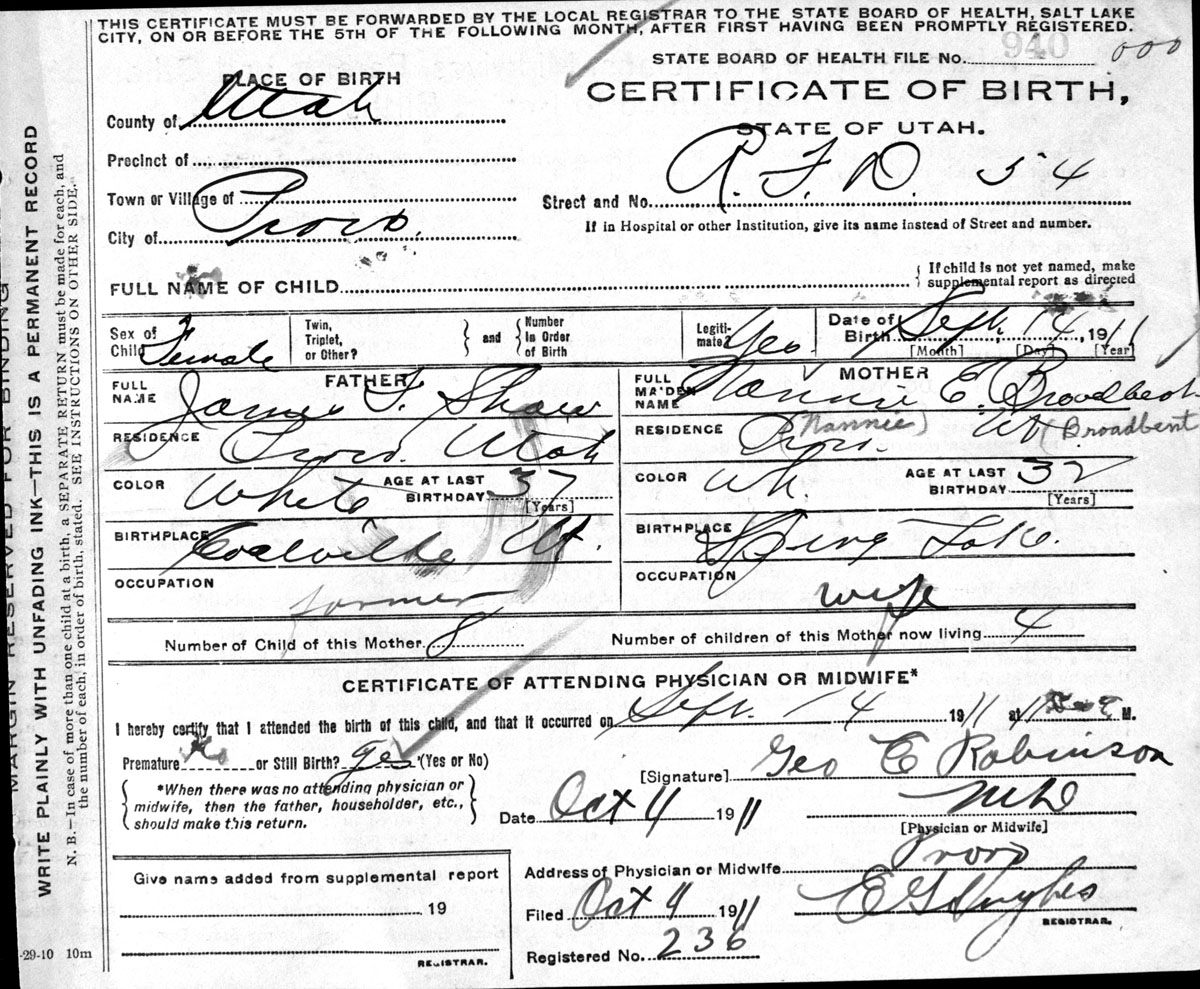 THIS CERTIFICATE MUST BE FORWARDED BY THE LOCAL REGISTRAR TO THE STATE BOARD OF HEALTH, SALT LAKE
CITY, ON OR BEFORE THE 5TH OF THE FOLLOWING MONTH, AFTER FIRST HAVING BEEN PROMPTLY REGISTERED.
STATE BOARD OF HEALTH FILE No. 940 000
PLACE OF BIRTH
CERTIFICATE OF BIRTH,
STATE OF UTAH.
County of Utah
Precinct of
Town or Village of
Street and No. R. F. D. 54
City of Provo.
If in Hospital or other Institution, give its name instead of Street and number.
FULL NAME OF CHILD
{ If child is not yet named, make
supplemental report as directed
Sex of Child Female
Twin, Triplet, or Other? } and { Number in Order of Birth
Legiti- mate? Yes
Date of Birth Sept. 14, 1911
[Month] [Day] [Year]
FATHER
FULL NAME James F. Shaw
RESIDENCE Provo. Utah
COLOR White AGE AT LAST BIRTHDAY 37 [Years]
BIRTHPLACE Coalville Ut.
OCCUPATION farmer
MOTHER
FULL MAIDEN NAME Nannie E. Broadbent
(Nannie) (Broadbent
RESIDENCE Provo. Ut
COLOR Wh. AGE AT LAST BIRTHDAY 37 [Years]
BIRTHPLACE Spring Lake.
OCCUPATION wife
Number of Child of this Mother 8 Number of children of this Mother now living 4
CERTIFICATE OF ATTENDING PHYSICIAN OR MIDWIFE*
I hereby certify that I attended the birth of this child, and that it occurred on Sept. 14 1911 at 11 M.
Premature No or Still Birth? Yes (Yes or No)
[Signature] Geo E Robinson
{ *When there was no attending physician or
midwife, then the father, householder, etc.,
should make this return. }
Date Oct 4 1911 MD
[Physician or Midwife]
Address of Physician or Midwife Provo
Filed Oct 4 1911 E G Hughes
REGISTRAR.
Registered No. 236
Give name added from supplemental report
19
REGISTRAR.
MARGIN RESERVED FOR BINDING
WRITE PLAINLY WITH UNFADING INK—THIS IS A PERMANENT RECORD
N. B.—In case of more than one child at a birth, a SEPARATE RETURN must be made for each, and
the number of each, in order of birth, stated. SEE INSTRUCTIONS ON OTHER SIDE.
-29-10 10m